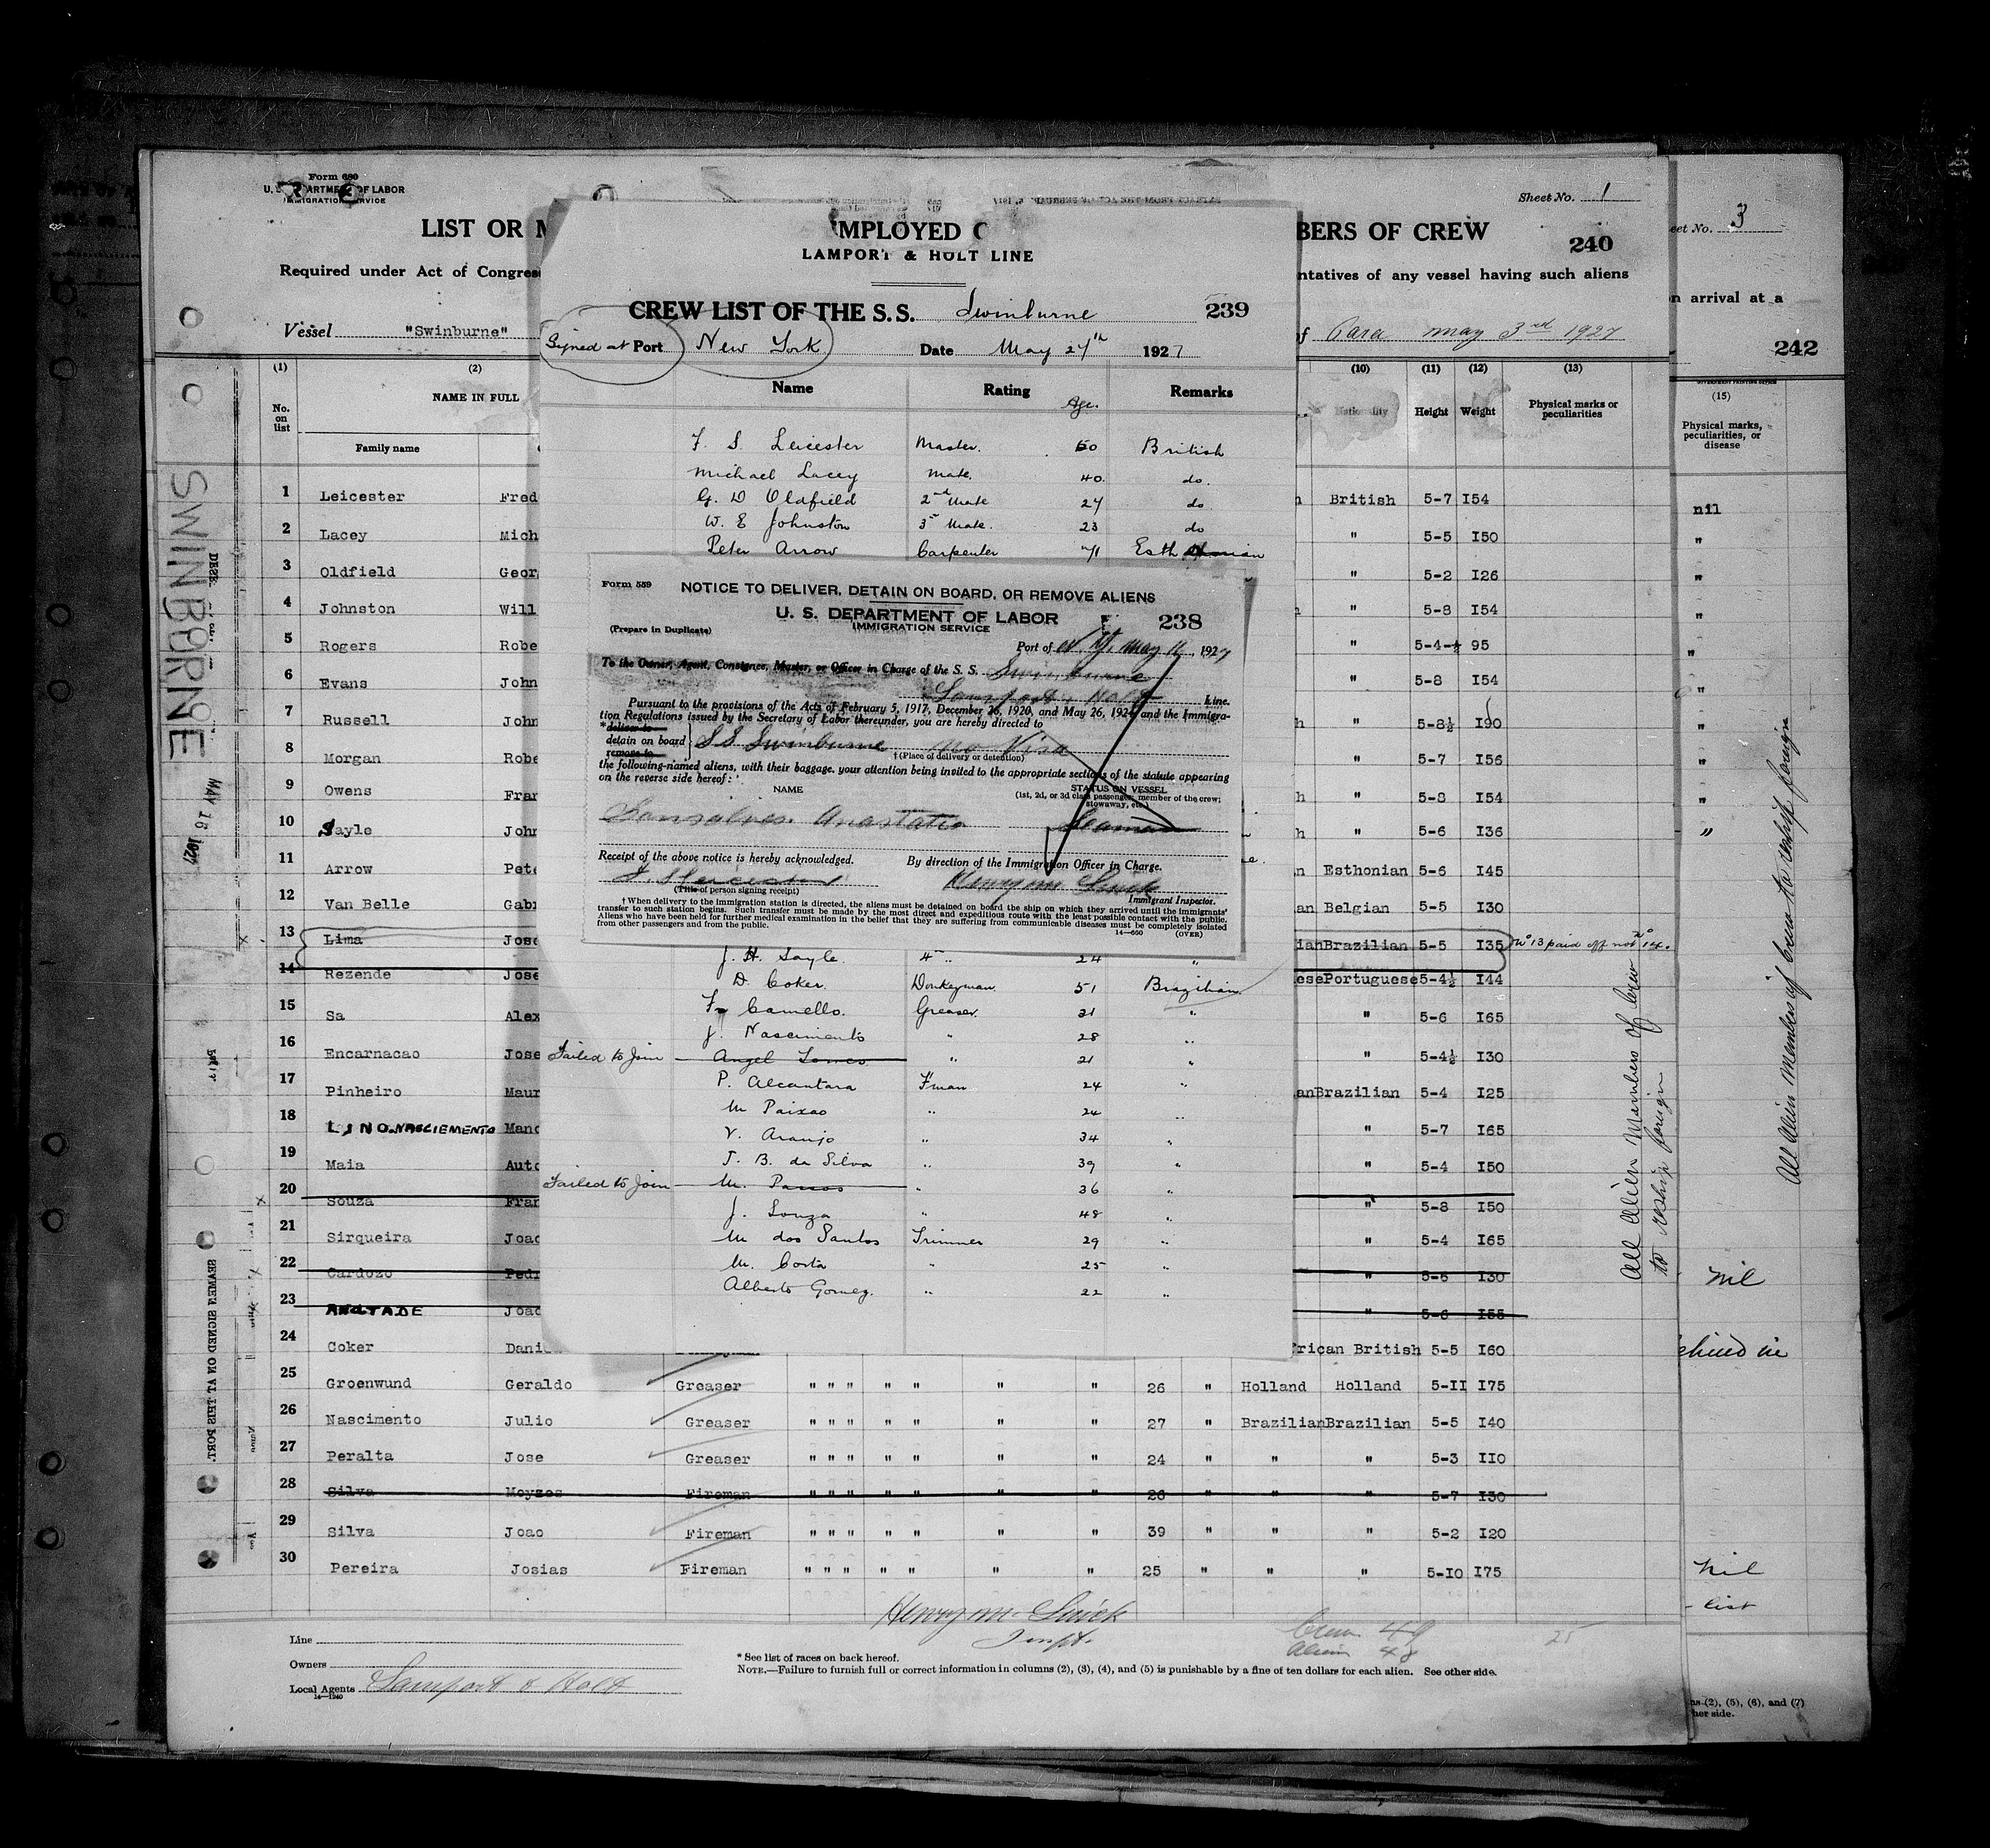 Form 680
U. S. DEPARTMENT OF LABOR
IMMIGRATION SERVICE
Sheet No. 1
LIST OR M
BERS OF CREW
240
Required under Act of Congress
ntatives of any vessel having such aliens
Vessel "Swinburne"
of Para May 3rd 1927
(1) (2)
No. on list
NAME IN FULL
Family name
(10) (11) (12) (13)
Nationality Height Weight Physical marks or peculiarities
1 Leicester Fred British 5-7 I54
2 Lacey Mich " 5-5 I50
3 Oldfield Geor " 5-2 I26
4 Johnston Will " 5-8 I54
5 Rogers Robe " 5-4-½ 95
6 Evans John " 5-8 I54
7 Russell John " 5-8½ I90
8 Morgan Robe " 5-7 I56
9 Owens Fran " 5-8 I54
10 Sayle John " 5-6 I36
11 Arrow Pete Esthonian 5-6 I45
12 Van Belle Gabr an Belgian 5-5 I30
13 Lima Jose ianBrazilian 5-5 I35 No 13 paid off not No 14.
14 Rezende Jose esePortuguese5-4½ I44
15 Sa Alex " 5-6 I65
16 Encarnacao Jose " 5-4½ I30
17 Pinheiro Maur anBrazilian 5-4 I25
18 LINO.NASCIEMENTO Mano " 5-7 I65
19 Maia Auto " 5-4 I50
20 Souza Fran " 5-8 I50
21 Sirqueira Joao " 5-4 I65
22 Cardozo Pedr " 5-6 I30
23 ANDTADE Joao " 5-6 I55
24 Coker Dani frican British 5-5 I60
25 Groenwund Geraldo Greaser " " " " " " " 26 " Holland Holland 5-II I75
26 Nascimento Julio Greaser " " " " " " " 27 " BrazilianBrazilian 5-5 I40
27 Peralta Jose Greaser " " " " " " " 24 " " " 5-3 II0
28 Silva Moyzes Fireman " " " " " " " 26 " " " 5-7 I30
29 Silva Joao Fireman " " " " " " " 39 " " " 5-2 I20
30 Pereira Josias Fireman " " " " " " " 25 " " " 5-I0 I75
Henry M. Quick
Inspt.
Crew 49
Alien 48
25
Line
Owners
Local Agents Lamport & Holt
14—1240
* See list of races on back hereof.
NOTE.—Failure to furnish full or correct information in columns (2), (3), (4), and (5) is punishable by a fine of ten dollars for each alien. See other side.
All Alien Members of Crew
to reship foreign
SWINBURNE
MAY 16 1927
SEAMEN SIGNED ON AT THIS PORT.
MPLOYED O
LAMPORT & HOLT LINE
CREW LIST OF THE S.S. Swinburne 239
Signed at Port New York Date May 24th 1927
Name Rating Age. Remarks
F. S Leicester Master. 50 British
Michael Lacey Mate. 40. do.
G. D Oldfield 2nd Mate 24 do
W. E Johnston 3rd Mate. 23 do
Peter Arrow Carpenter 41 Esthonian
Form 559
NOTICE TO DELIVER, DETAIN ON BOARD, OR REMOVE ALIENS
U. S. DEPARTMENT OF LABOR
IMMIGRATION SERVICE
238
(Prepare in Duplicate)
Port of N.Y. May 16, 1927
To the Owner, Agent, Consignee, Master, or Officer in Charge of the S. S. Swinburne
Lamport & Holt Line.
Pursuant to the provisions of the Acts of February 5, 1917, December 26, 1920, and May 26, 1924 and the Immigra-
tion Regulations issued by the Secretary of Labor thereunder, you are hereby directed to
*deliver to
detain on board SS Swinburne No Visa
remove to
†(Place of delivery or detention)
the following-named aliens, with their baggage, your attention being invited to the appropriate sections of the statute appearing
on the reverse side hereof:
NAME
STATUS ON VESSEL
(1st, 2d, or 3d class passenger, member of the crew;
stowaway, etc.)
Gonsalves Anastatio Seaman
Receipt of the above notice is hereby acknowledged.
By direction of the Immigration Officer in Charge.
F. S Leicester
Henry M Quick
(Title of person signing receipt)
Immigrant Inspector.
† When delivery to the immigration station is directed, the aliens must be detained on board the ship on which they arrived until the immigrants'
transfer to such station begins. Such transfer must be made by the most direct and expeditious route with the least possible contact with the public.
Aliens who have been held for further medical examination in the belief that they are suffering from communicable diseases must be completely isolated
from other passengers and from the public.
14—660 (OVER)
J. H. Sayle. 4th " 24 "
D. Coker. Donkeyman 51 Brazilian.
F. Camello. Greaser. 31 "
J. Nascimento " 28 "
Failed to Join Angel Lomes " 21 "
P. Alcantara F'man 24 "
M Paixao " 24 "
V. Araujo " 34 "
J. B. da Silva " 39 "
Failed to Join M. Passos " 36 "
J. Souza " 48 "
M dos Santos Trimmer 29 "
M. Costa " 25 "
Alberto Gomez. " 22 "
eet No. 3
n arrival at a
242
GOVERNMENT PRINTING OFFICE
(15)
Physical marks,
peculiarities, or
disease
nil
"
"
"
"
"
"
"
"
"
nil
ehind in
nil
list
All Alien Members of Crew to reship foreign
ns (2), (5), (6), and (7)
her side.